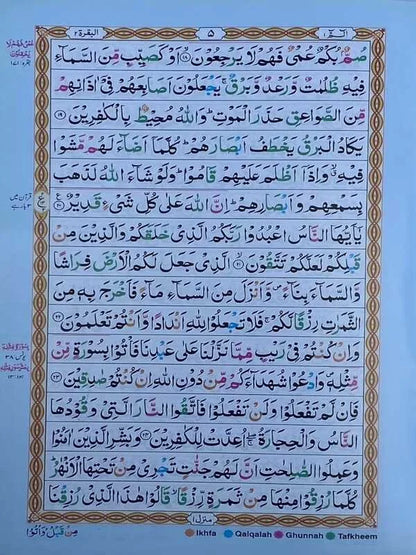 البقرة ٢
٥
الٓمّٓ ١
صُمٌّۢ بُكْمٌ عُمْیٌ فَهُمْ لَا یَرْجِعُوْنَ ﴿۱۸﴾ اَوْ كَصَیِّبٍ مِّنَ السَّمَآءِ
فِیْهِ ظُلُمٰتٌ وَّرَعْدٌ وَّبَرْقٌ ۚ یَجْعَلُوْنَ اَصَابِعَهُمْ فِیْۤ اٰذَانِهِمْ
مِّنَ الصَّوَاعِقِ حَذَرَ الْمَوْتِ ؕ وَاللّٰهُ مُحِیْطٌۢ بِالْكٰفِرِیْنَ ﴿۱۹﴾
یَكَادُ الْبَرْقُ یَخْطَفُ اَبْصَارَهُمْ ؕ كُلَّمَاۤ اَضَآءَ لَهُمْ مَّشَوْا
فِیْهِ ۙ وَاِذَاۤ اَظْلَمَ عَلَیْهِمْ قَامُوْا ؕ وَلَوْ شَآءَ اللّٰهُ لَذَهَبَ
بِسَمْعِهِمْ وَاَبْصَارِهِمْ ؕ اِنَّ اللّٰهَ عَلٰی كُلِّ شَیْءٍ قَدِیْرٌ ﴿۲۰﴾
یٰۤاَیُّهَا النَّاسُ اعْبُدُوْا رَبَّكُمُ الَّذِیْ خَلَقَكُمْ وَالَّذِیْنَ مِنْ
قَبْلِكُمْ لَعَلَّكُمْ تَتَّقُوْنَ ﴿۲۱﴾ الَّذِیْ جَعَلَ لَكُمُ الْاَرْضَ فِرَاشًا
وَّالسَّمَآءَ بِنَآءً ۪ وَّاَنْزَلَ مِنَ السَّمَآءِ مَآءً فَاَخْرَجَ بِهٖ مِنَ
الثَّمَرٰتِ رِزْقًا لَّكُمْ ۚ فَلَا تَجْعَلُوْا لِلّٰهِ اَنْدَادًا وَّاَنْتُمْ تَعْلَمُوْنَ ﴿۲۲﴾
وَاِنْ كُنْتُمْ فِیْ رَیْبٍ مِّمَّا نَزَّلْنَا عَلٰی عَبْدِنَا فَاْتُوْا بِسُوْرَةٍ مِّنْ
مِّثْلِهٖ ۪ وَادْعُوْا شُهَدَآءَكُمْ مِّنْ دُوْنِ اللّٰهِ اِنْ كُنْتُمْ صٰدِقِیْنَ ﴿۲۳﴾
فَاِنْ لَّمْ تَفْعَلُوْا وَلَنْ تَفْعَلُوْا فَاتَّقُوا النَّارَ الَّتِیْ وَقُوْدُهَا
النَّاسُ وَالْحِجَارَةُ ۖۚ اُعِدَّتْ لِلْكٰفِرِیْنَ ﴿۲۴﴾ وَبَشِّرِ الَّذِیْنَ اٰمَنُوْا
وَعَمِلُوا الصّٰلِحٰتِ اَنَّ لَهُمْ جَنّٰتٍ تَجْرِیْ مِنْ تَحْتِهَا الْاَنْهٰرُ ؕ
كُلَّمَا رُزِقُوْا مِنْهَا مِنْ ثَمَرَةٍ رِّزْقًا ۙ قَالُوْا هٰذَا الَّذِیْ رُزِقْنَا
منزل ١
مِنْ قَبْلُ وَاُتُوْا
Ikhfa Qalqalah Ghunnah Tafkheem